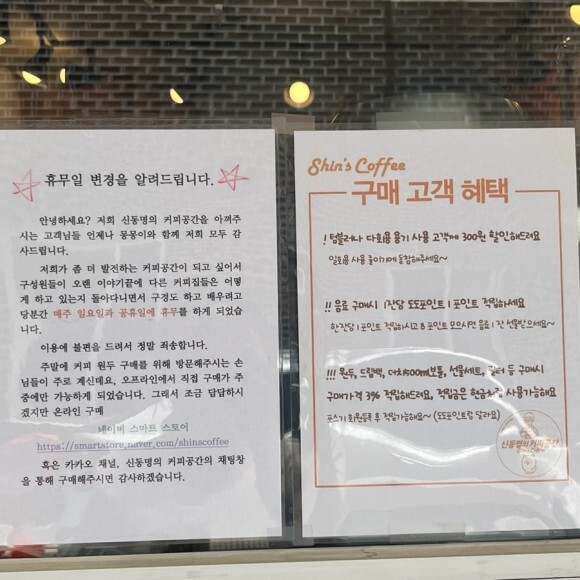 휴무일 변경을 알려드립니다.
안녕하세요? 저희 신동명의 커피공간을 아껴주
시는 고객님들 언제나 몽몽이와 함께 저희 모두 감
사드립니다.
저희가 좀 더 발전하는 커피공간이 되고 싶어서
구성원들이 오랜 이야기끝에 다른 커피집들은 어떻
게 하고 있는지 돌아다니면서 구경도 하고 배우려고
당분간 매주 일요일과 공휴일에 휴무를 하게 되었습
니다.
이용에 불편을 드려서 정말 죄송합니다.
주말에 커피 원두 구매를 위해 방문해주시는 손
님들이 주로 계신데요, 오프라인에서 직접 구매가 주
중에만 가능하게 되었습니다. 그래서 조금 답답하시
겠지만 온라인 구매
네이버 스마트 스토어
https://smartstore.naver.com/shinscoffee
혹은 카카오 채널, 신동명의 커피공간의 채팅창
을 통해 구매해주시면 감사하겠습니다.
Shin's Coffee
구매 고객 혜택
! 텀블러나 다회용 용기 사용 고객께 300원 할인해드려요
일회용 사용 줄이기에 동참해주세요~
!! 음료 구매시 1잔당 도도포인트 1 포인트 적립하세요
한잔당 1 포인트 적립하시고 8 포인트 모으시면 음료 1 잔 선물받으세요~
!!! 원두, 드립백, 더치500ml보틀, 선물세트, 필터 등 구매시
구매가격 3% 적립해드려요, 적립금은 현금처럼 사용가능해요
포스기 회원등록 후 적립가능해요~ (도도포인트랑 달라요)
신동명의 커피공간